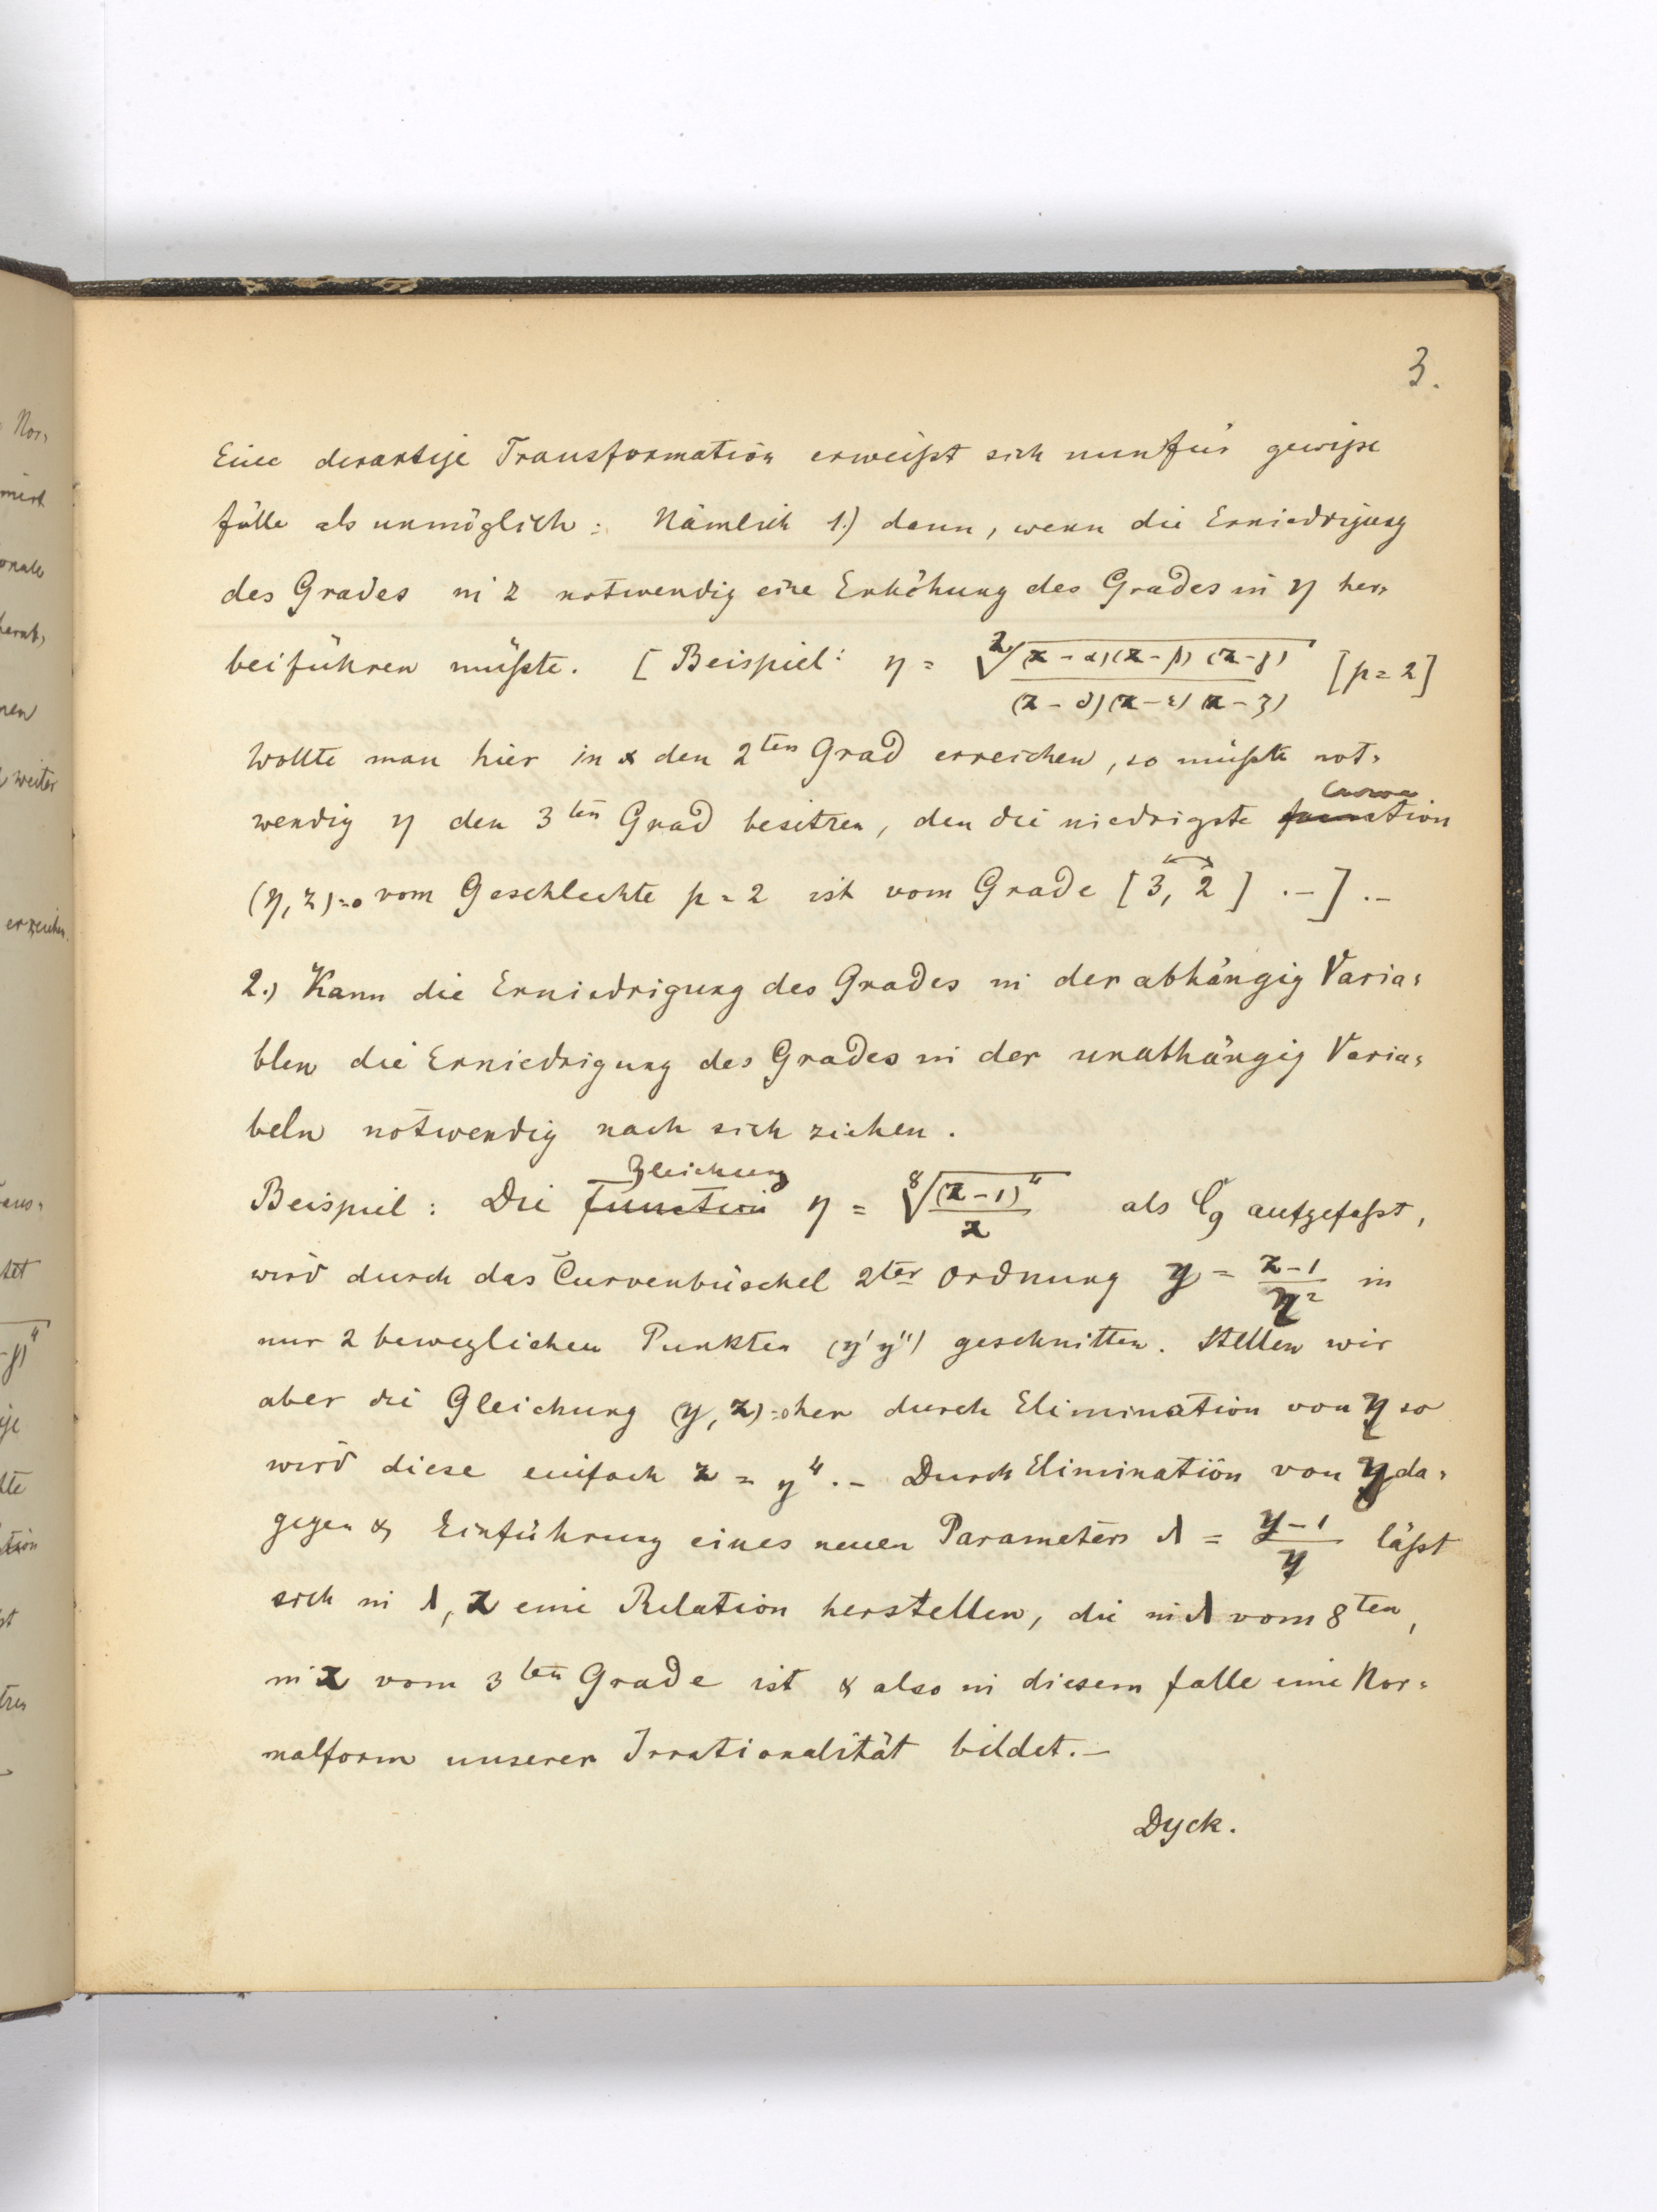 3.
Eine derartige Transformation erweißt sich nun für gewiße
fälle als unmöglich: Nämlich 1.) dann, wenn die Erniedrigung
des Grades in z notwendig eine Erhöhung des Grades in η her-
beiführen müßte. [Beispiel: η = ²√((z-α)(z-β)(z-γ) / (z-δ)(z-ε)(z-ζ)) [p=2]
Wollte man hier in z den 2ten Grad erreichen, so müßte not-
wendig η den 3ten Grad besitzen, den die niedrigste function Curve
(η,z)=0 vom Geschlechte p=2 ist vom Grade [3, 2] .-] .-
2.) Kann die Erniedrigung des Grades in der abhängig Varia-
blen die Erniedrigung des Grades in der unabhängig Varia-
beln notwendig nach sich ziehen.
Beispiel: Die function Gleichung η = ⁸√((z-1)⁴ / z) als C₉ aufgefaßt,
wird durch das Curvenbüschel 2ter Ordnung y = (z-1)/η² in
nur 2 beweglichen Punkten (y'y'') geschnitten. Stellen wir
aber die Gleichung (y,z)=0 her durch Elimination von η so
wird diese einfach z = y⁴ .- Durch Elimination von y da-
gegen & Einführung eines neuen Parameters λ = (y-1)/y läßt
sich in λ, z eine Relation herstellen, die in λ vom 8ten,
in z vom 3ten Grade ist & also in diesem falle eine Nor-
malform unserer Irrationalität bildet.-
Dyck.
Nor-
mirt
onale
herab-
nen
weiter
erreichen.